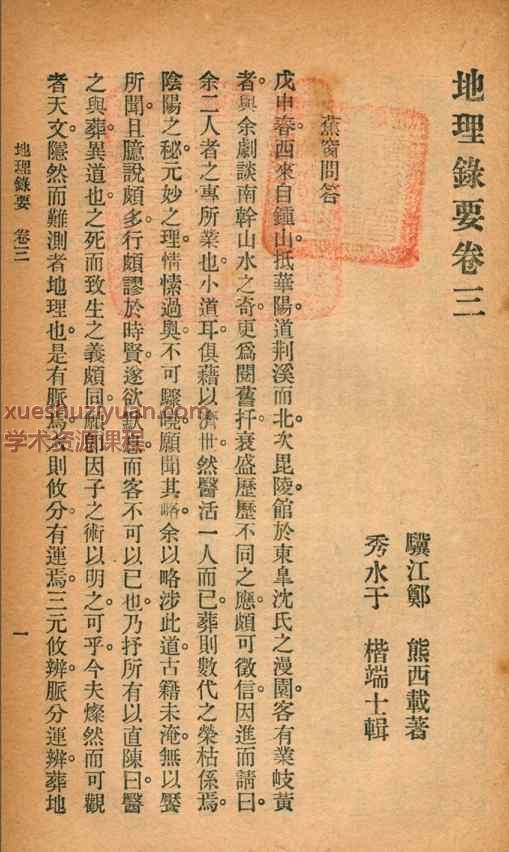 地理錄要卷三
驥江鄭　熊西載著
秀水于　楷端士輯
蕉窗問答
戊申春。西來自鍾山。抵華陽。道荆溪而北。次毘陵。館於東皐沈氏之漫園。客有業岐黃
者。與余劇談南幹山水之奇。更爲閱舊扦衰盛歷歷不同之應。頗可徵信。因進而請曰。
余二人者之專所業也。小道耳。俱藉以濟世。然醫活一人而已。葬則數代之榮枯係焉。
陰陽之秘。元妙之理。情愫過奧。不可驟曉。願聞其略。余以略涉此道。古籍未淹。無以饜
所聞。且臆說頗多。行頗謬於時賢。遂欲默焉。而客不可以已也。乃抒所有以直陳曰。醫
之與葬異道也。之死而致生之義頗同。願因子之術以明之可乎。今夫燦然而可觀
者天文。隱然而難測者地理也。是有脈焉。大則攸分。有運焉。三元攸辨。脈分運辨。葬地
地理錄要　卷三
一
xueshuziyuan.com
学术资源课程